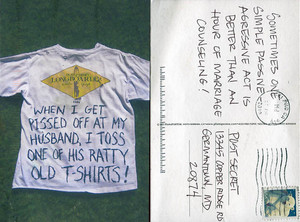 LONGBOARDER
WHEN I GET
PISSED OFF AT MY
HUSBAND, I TOSS
ONE OF HIS RATTY
OLD T-SHIRTS!
SOMETIMES ONE
SIMPLE PASSIVE
AGRESSIVE ACT IS
BETTER THAN AN
HOUR OF MARRIAGE
COUNSELING!
POST SECRET
13345 COPPER RIDGE RD
GERMANTOWN, MD
20874